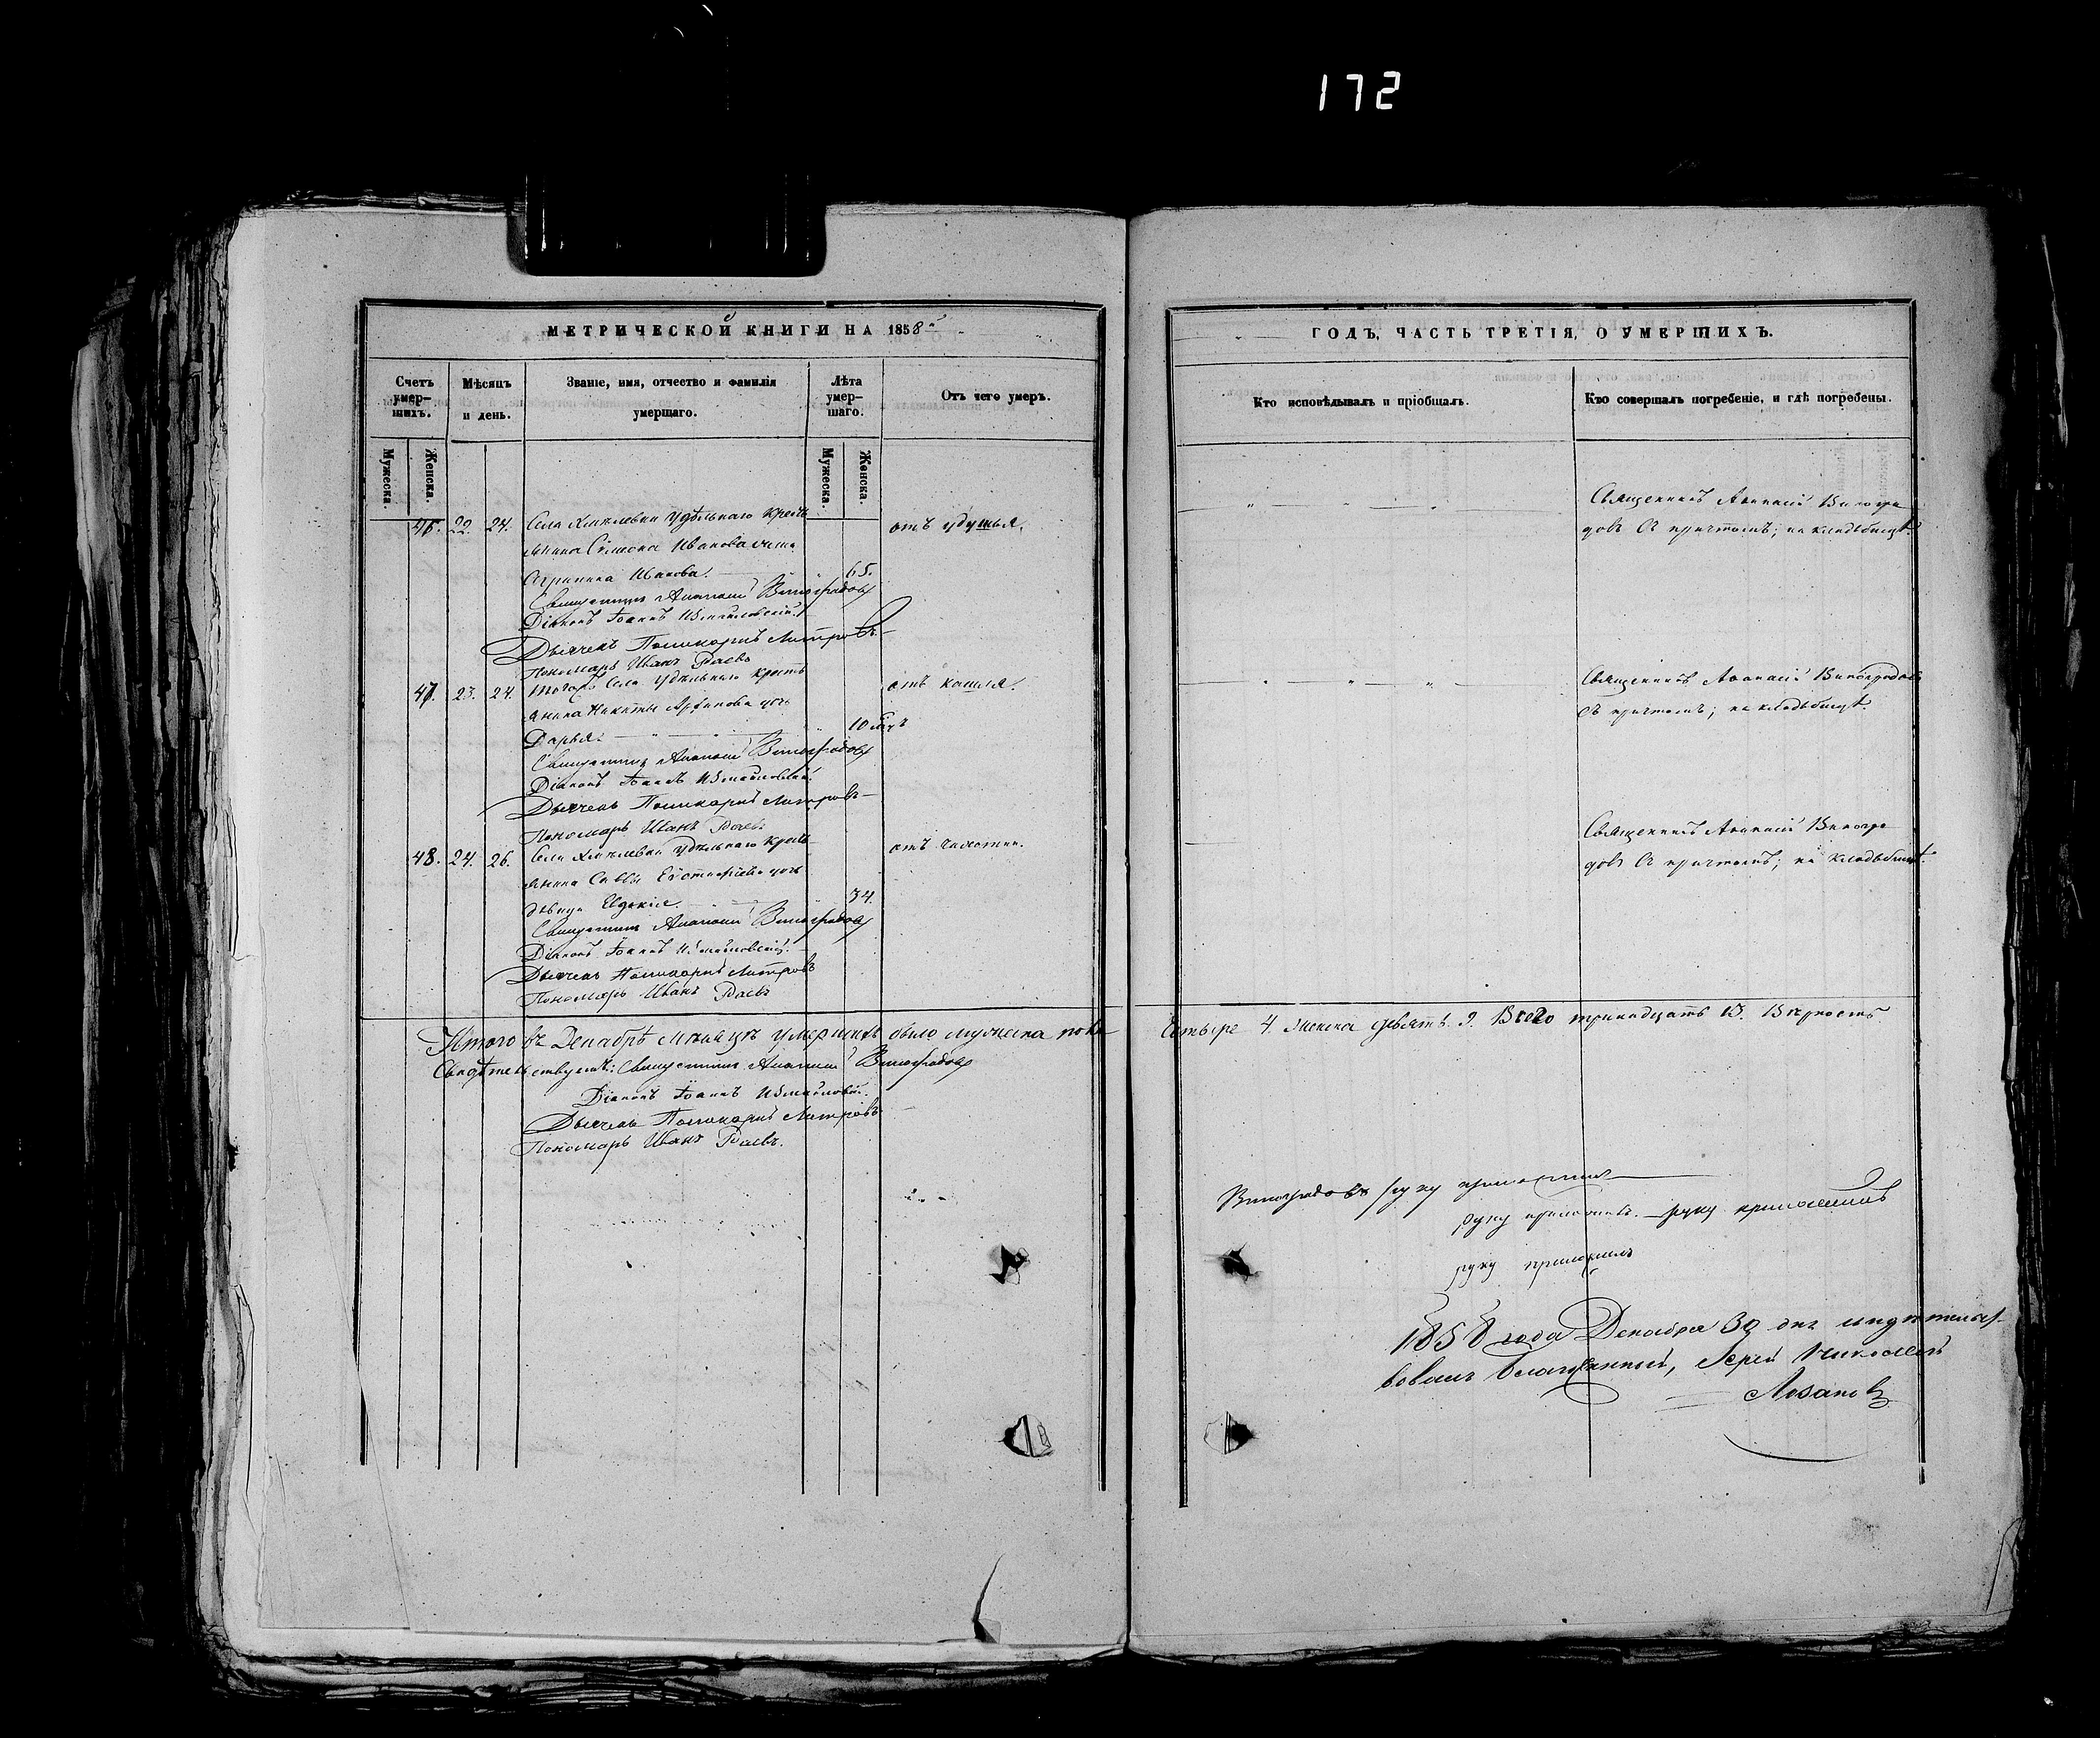 172
МЕТРИЧЕСКОЙ КНИГИ НА 1858й
Счетъ умер-шихъ.
Мѣсяцъ и день.
Званіе, имя, отчество и фамилія умершаго.
Лѣта умер-шаго.
Отъ чего умеръ.
Мужеска.
Женска.
Мужеска.
Женска.
46. 22. 24. Села Хмѣлевки удѣльнаго кресть
янина Симона Иванова жена
Агрипина Иванова. 65. отъ удушья.
Священникъ Афанасій Виноградовъ
Діаконъ Іоаннъ Измайловскій.
Дьячекъ Поликарпъ Митровъ
Пономарь Иванъ Раевъ
47. 23. 24. Того села удѣльнаго кресть
янина Никиты дочь
Дарья. 10 отъ кашля.
Священникъ Афанасій Виноградовъ
Діаконъ Іоаннъ Измайловскій.
Дьячекъ Поликарпъ Митровъ
Пономарь Иванъ Раевъ
48. 24. 26. Села Хмѣлевки удѣльнаго кресть
янина Саввы дочь
дѣвица Евдокія. 34. отъ чахотки.
Священникъ Афанасій Виноградовъ
Діаконъ Іоаннъ Измайловскій.
Дьячекъ Поликарпъ Митровъ
Пономарь Иванъ Раевъ
Итого въ Декабрѣ мѣсяцѣ умершихъ было мужеска пола
Свидѣтельствуемъ: Священникъ Афанасій Виноградовъ
Діаконъ Іоаннъ Измайловскій.
Дьячекъ Поликарпъ Митровъ
Пономарь Иванъ Раевъ.
ГОДЪ, ЧАСТЬ ТРЕТІЯ, О УМЕРШИХЪ.
Кто исповѣдывалъ и пріобщалъ.
Кто совершалъ погребеніе, и гдѣ погребены.
Священникъ Афанасій Виногра
довъ съ причтомъ; на кладбищѣ.
Священникъ Афанасій Виноградовъ
съ причтомъ; на кладбищѣ.
Священникъ Афанасій Виногра
довъ съ причтомъ; на кладбищѣ.
четыре 4. женска девять. 9. Всего тринадцать 13. Вѣрность
Виноградовъ руку приложилъ
руку приложилъ. руку приложилъ
руку приложилъ
1858 года Декабря 30 дня свидѣтельст
вовалъ Благочинный, Іерей Николай
Лозановъ